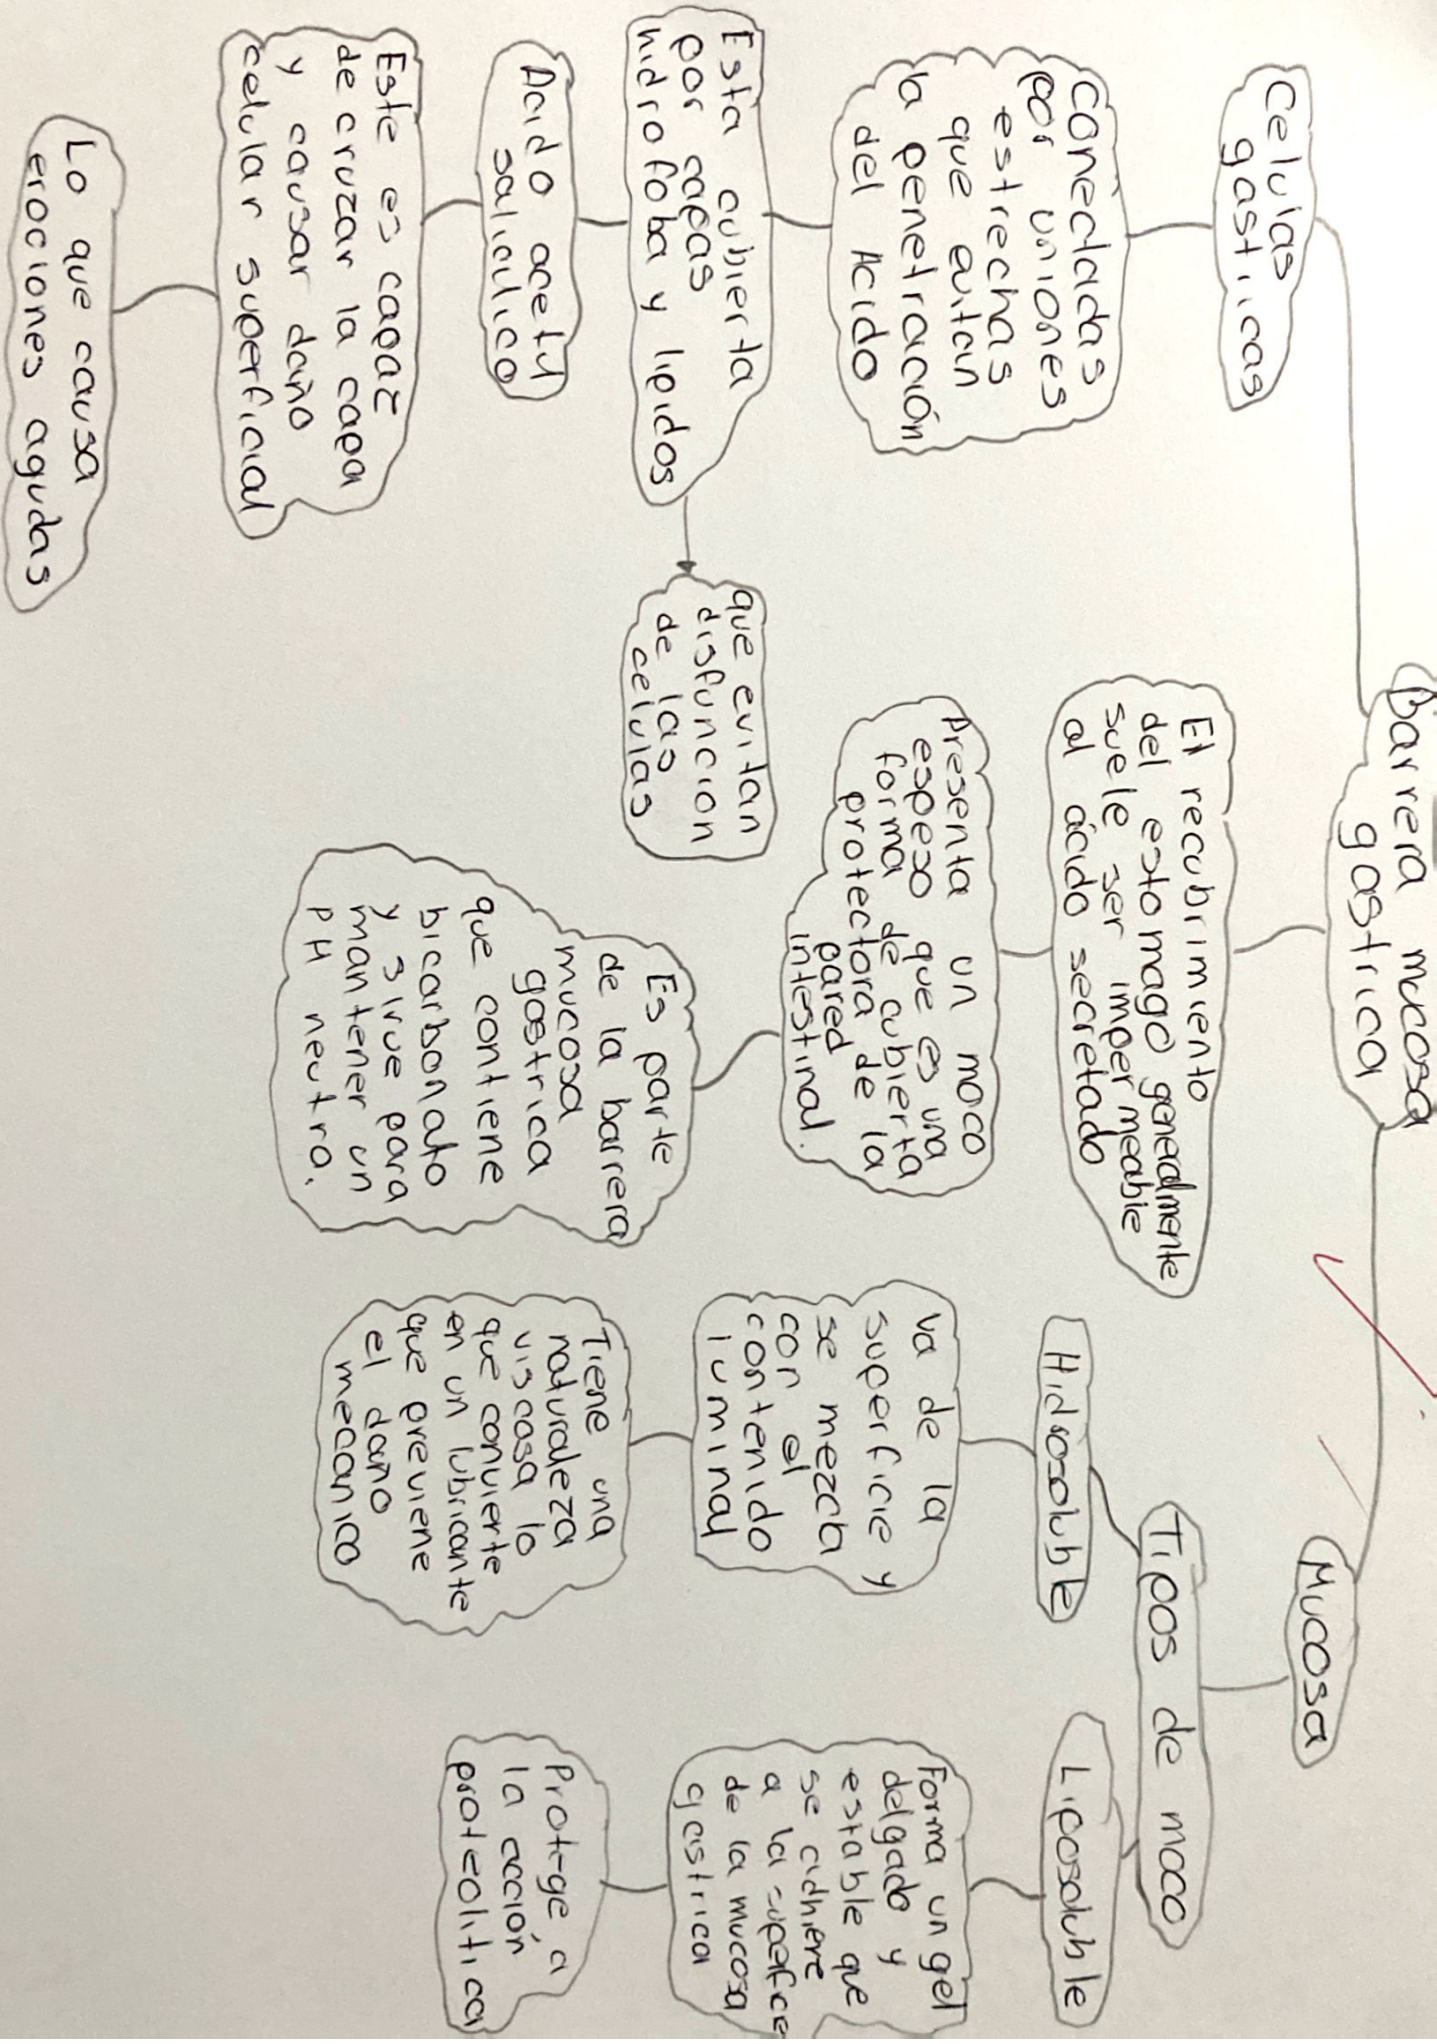 Barrera mucosa
gastrica
Celulas
gastricas
Conectadas
por uniones
estrechas
que evitan
la penetración
del Acido
Esta cubierta
por capas
hidrofoba y lipidos
que evitan
disfuncion
de las
celulas
Acido acetil
salicilico
Este es capaz
de cruzar la capa
y causar daño
celular superficial
Lo que causa
erociones agudas
El recubrimiento
del estomago generalmente
suele ser impermeable
al ácido secretado
Presenta un moco
espeso que es una
forma de cubierta
protectora de la
pared
intestinal.
Es parte
de la barrera
mucosa
gastrica
que contiene
bicarbonato
y sirve para
mantener un
PH neutro.
Mucosa
Tipos de moco
Hidrosoluble
Va de la
superficie y
se mezcla
con el
contenido
luminal
Tiene una
naturaleza
viscosa lo
que convierte
en un lubricante
que previene
el daño
mecanico
Liposoluble
Forma un gel
delgado y
estable que
se adhiere
a la superfice
de la mucosa
gastrica
Protege a
la acción
proteolitica